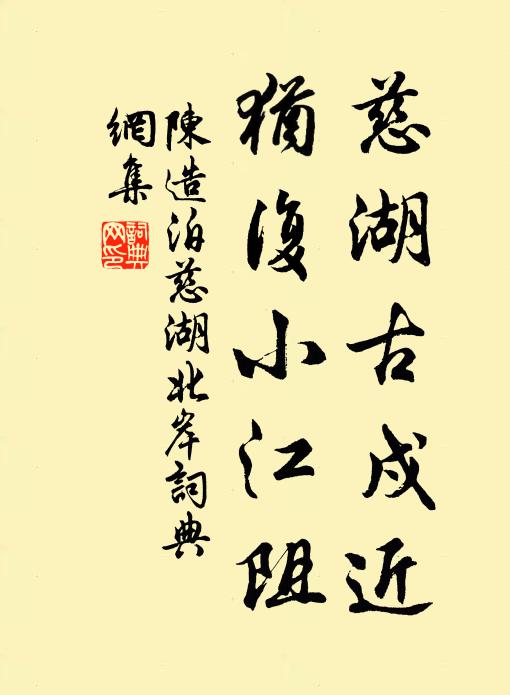 慈湖古戍近
猶復小江阻
陳造泊慈湖北岸詞典
網集
詞典網印